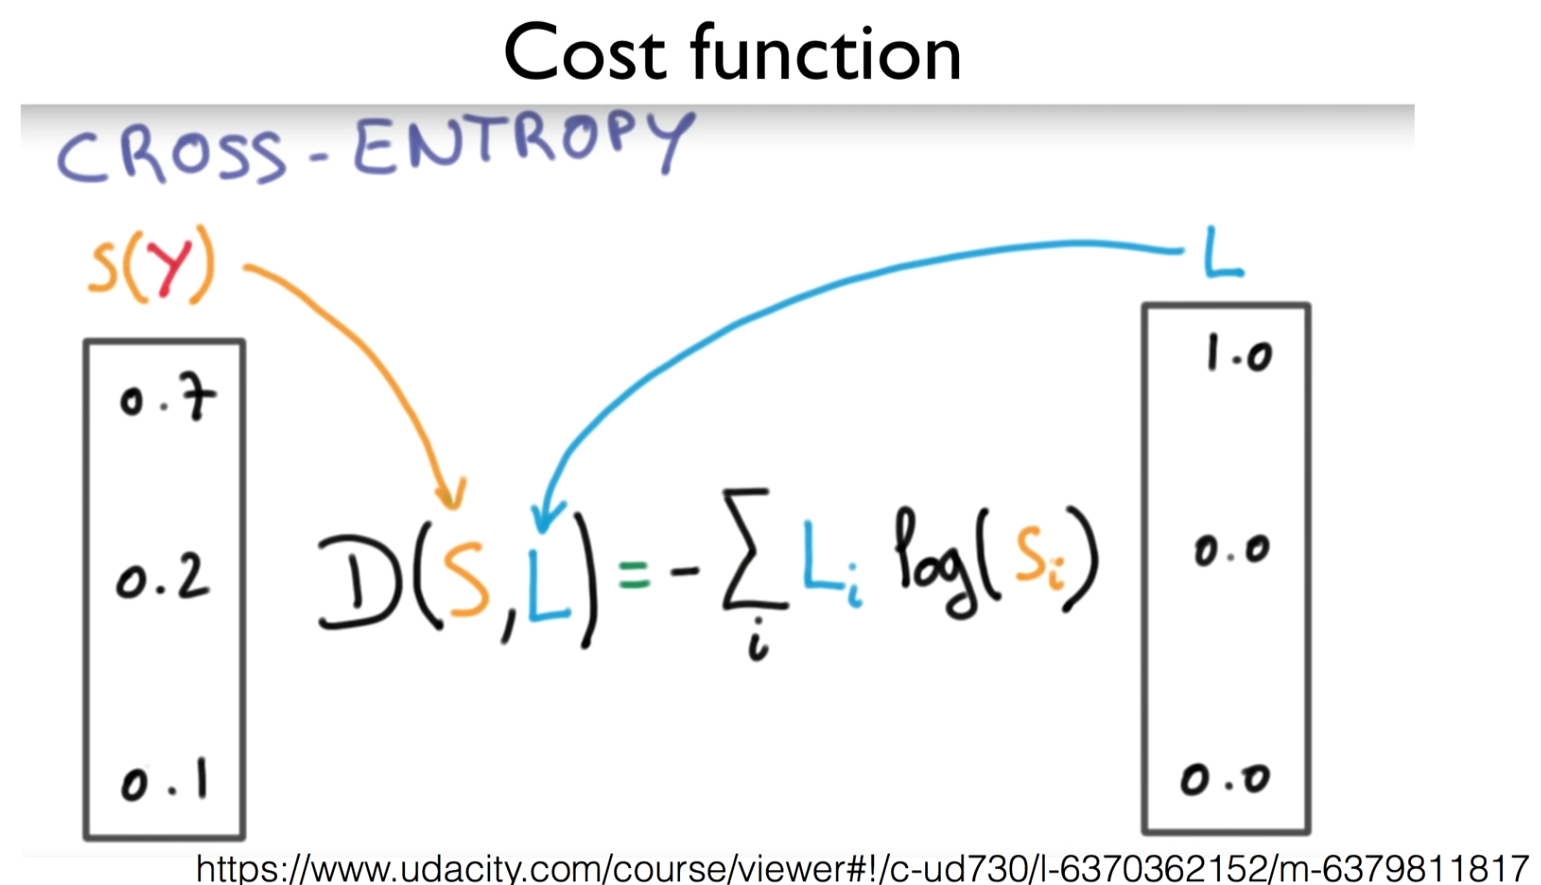 Cost function
CROSS-ENTROPY
S(Y)
L
0.7
0.2
0.1
D(S,L) = - ∑ᵢ Lᵢ log(Sᵢ)
1.0
0.0
0.0
https://www.udacity.com/course/viewer#!/c-ud730/l-6370362152/m-6379811817